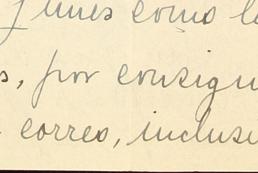 como l
s, por consigu
correo, inclus